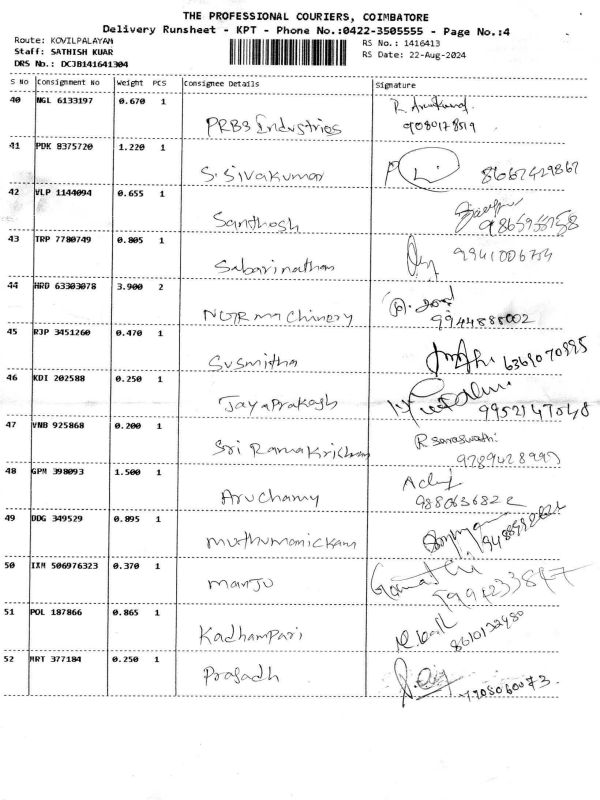 THE PROFESSIONAL COURIERS, COIMBATORE
Delivery Runsheet - KPT - Phone No.:0422-3505555 - Page No.:4
Route: KOVILPALAYAM RS No.: 1416413
Staff: SATHISH KUAR RS Date: 22-Aug-2024
DRS No.: DCJB141641304
S No Consignment No Weight PCS Consignee Details Signature
40 NGL 6133197 0.670 1
PRBS Industries 9080178519
41 PDK 8375720 1.220 1
S. Sivakumar 8667429867
42 VLP 1144094 0.655 1
Santhosh
43 TRP 7780749 0.805 1
Sabarinathan
44 HRD 63303078 3.900 2
NGR machinery 9944888002
45 RJP 3451260 0.470 1
Susmitha 6369070995
46 KDI 202588 0.250 1
Jayaprakash 9952147048
47 VNB 925868 0.200 1 R Saraswathi
Sri Ramakrishnan
48 GPM 398093 1.500 1
Aruchamy 9880636822
49 DDG 349529 0.895 1
muthumanickam
50 IXM 506976323 0.370 1
manju
51 POL 187866 0.865 1
Kadhampari 8610132980
52 MRT 377184 0.250 1
Prasadh